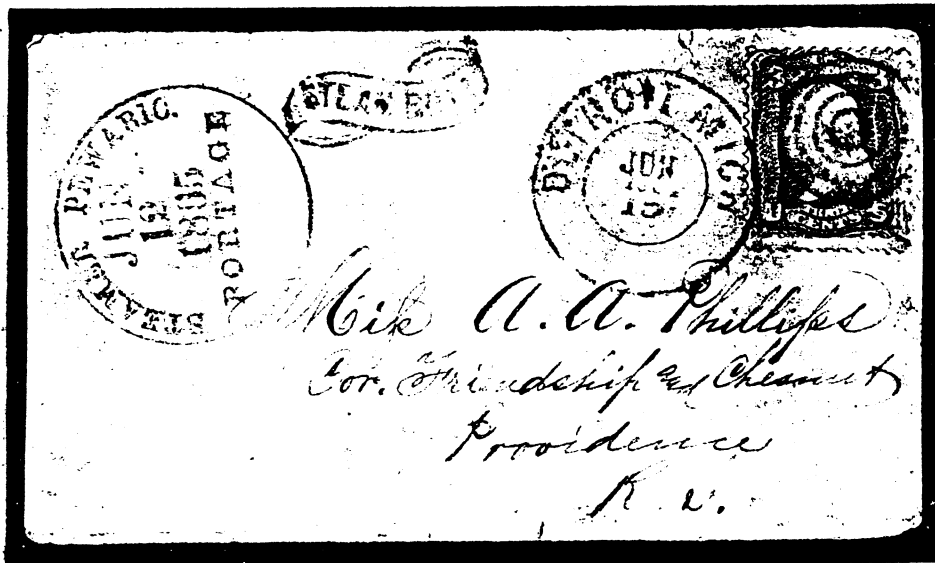 STEAMER PEWABIC.
JUN
12
1865
PORTAGE
STEAM BOAT
DETROIT MICH
JUN
15
A. A. Phillips
Cor. Friendship and Chesnut
Providence
R. I.